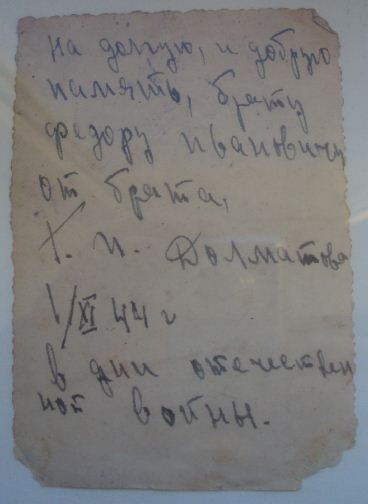 на долгую, и добрую
память, брату
федору ивановичу
от брата,
Х. И. Долматова
1/XI 44 г
в дни отечествен
ной войны.